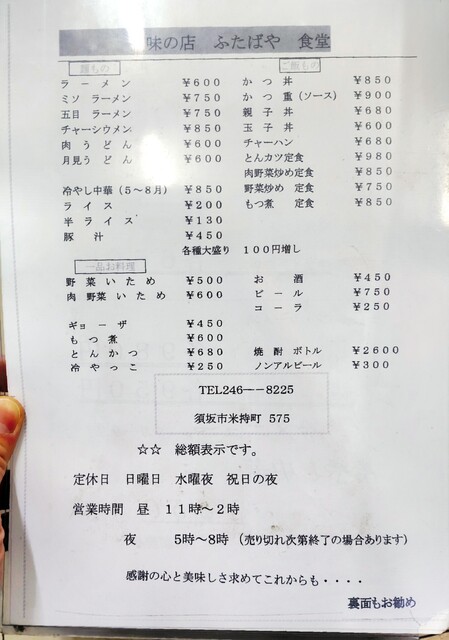 味の店 ふたばや 食堂
麺もの
ラーメン ¥600
ミソ ラーメン ¥750
五目 ラーメン ¥750
チャーシウメン ¥850
肉うどん ¥600
月見うどん ¥600
冷やし中華(5〜8月) ¥850
ライス ¥200
半ライス ¥130
豚汁 ¥450
ご飯もの
かつ丼 ¥850
かつ重(ソース) ¥900
親子丼 ¥680
玉子丼 ¥600
チャーハン ¥680
とんカツ定食 ¥980
肉野菜炒め定食 ¥850
野菜炒め 定食 ¥750
もつ煮 定食 ¥850
各種大盛り 100円増し
一品お料理
野菜いため ¥500
肉野菜いため ¥600
ギョーザ ¥450
もつ煮 ¥600
とんかつ ¥680
冷やっこ ¥250
お酒 ¥450
ビール ¥750
コーラ ¥250
焼酎ボトル ¥2600
ノンアルビール ¥300
TEL246―8225
須坂市米持町 575
☆☆ 総額表示です。
定休日 日曜日 水曜夜 祝日の夜
営業時間 昼 11時〜2時
夜 5時〜8時 (売り切れ次第終了の場合あります)
感謝の心と美味しさ求めてこれからも・・・・
裏面もお勧め